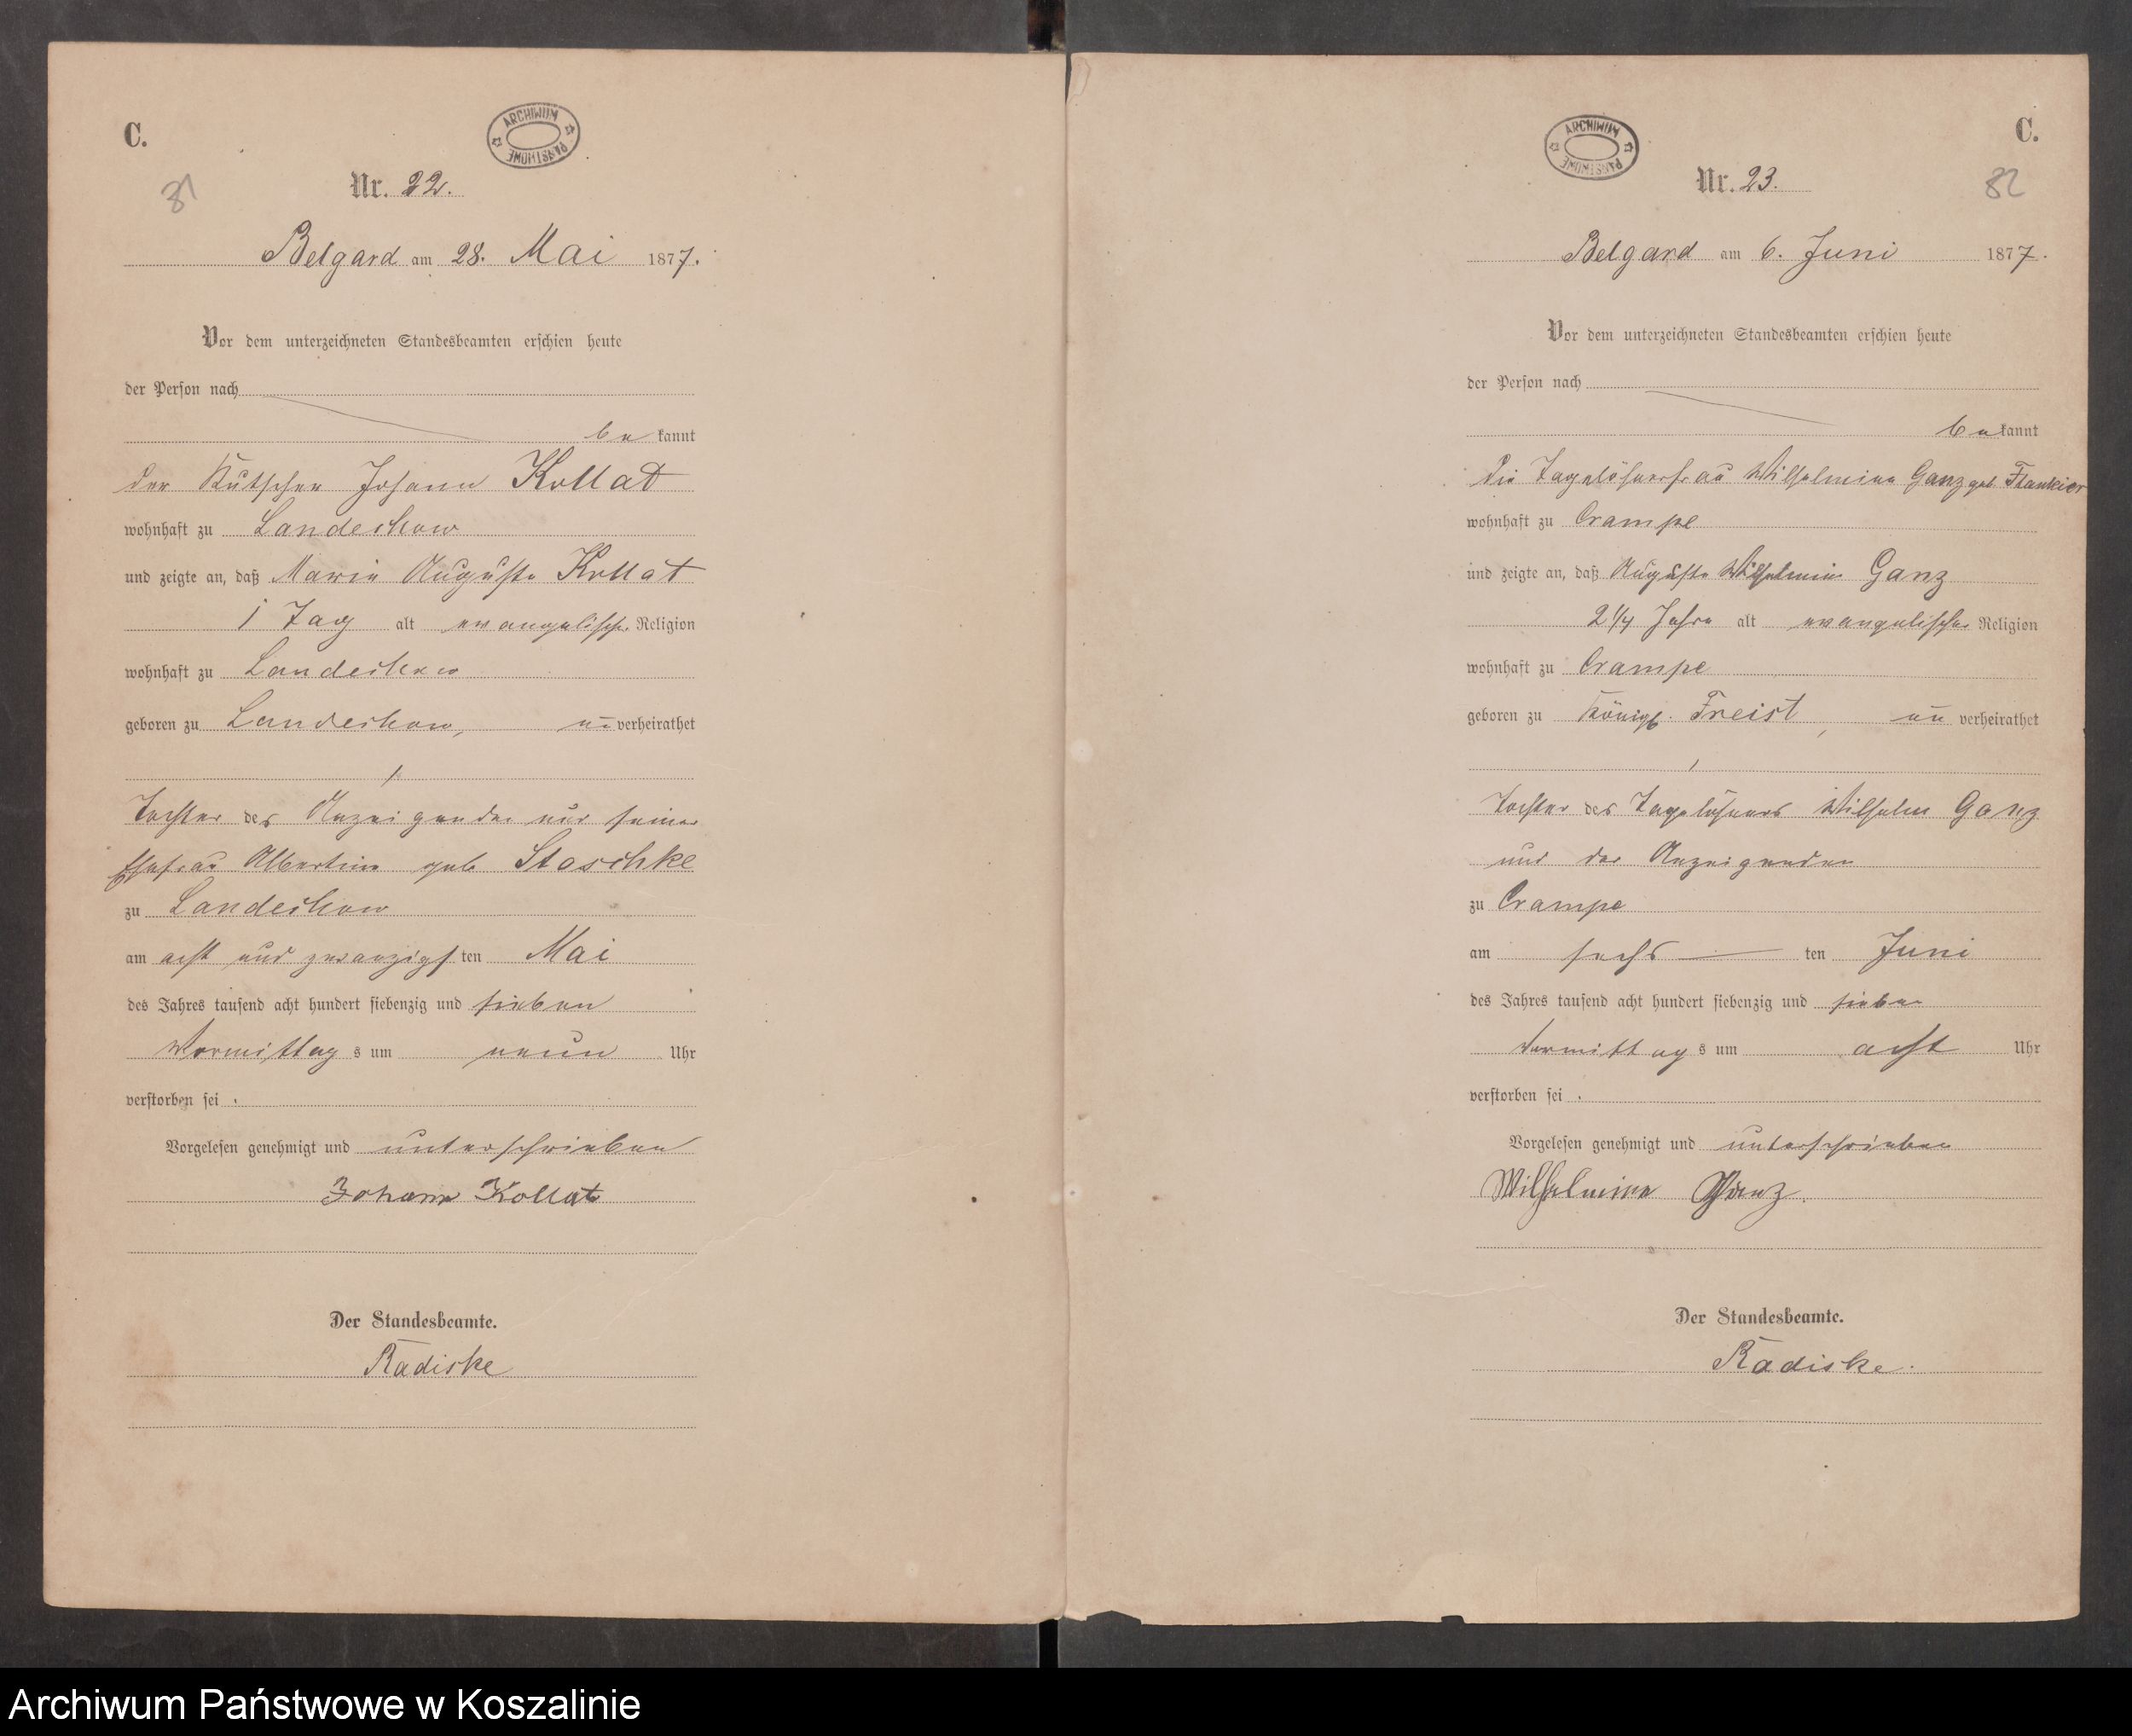 C.
ARCHIWUM PAŃSTWOWE
81
Nr. 22.
Belgard am 28. Mai 1877.
Vor dem unterzeichneten Standesbeamten erschien heute
der Person nach
be kannt
der Kutscher Johann Kollat
wohnhaft zu Landechow
und zeigte an, daß Marie Auguste Kollat
1 Tag alt evangelischer Religion
wohnhaft zu Landechow
geboren zu Landechow, un verheirathet
Tochter des Anzeigenden und seiner
Ehefrau Albertine geb Staschke
zu Landechow
am acht und zwanzigs ten Mai
des Jahres tausend acht hundert siebenzig und sieben
Vormittag s um neun Uhr
verstorben sei .
Vorgelesen genehmigt und unterschrieben
Johann Kollat
Der Standesbeamte.
Radiske
C.
ARCHIWUM PAŃSTWOWE
82
Nr. 23.
Belgard am 6. Juni 1877.
Vor dem unterzeichneten Standesbeamten erschien heute
der Person nach
be kannt
die Tagelöhnerfrau Wilhelmine Ganz geb.
wohnhaft zu Crampe
und zeigte an, daß Auguste Wilhelmine Ganz
2 1/4 Jahre alt evangelischer Religion
wohnhaft zu Crampe
geboren zu Königl. Freist, un verheirathet
Tochter des Tagelöhners Wilhelm Ganz
und der Anzeigenden
zu Crampe
am sechs ten Juni
des Jahres tausend acht hundert siebenzig und sieben
Vormittag s um acht Uhr
verstorben sei .
Vorgelesen genehmigt und unterschrieben
Wilhelmine Ganz.
Der Standesbeamte.
Radiske.
Archiwum Państwowe w Koszalinie